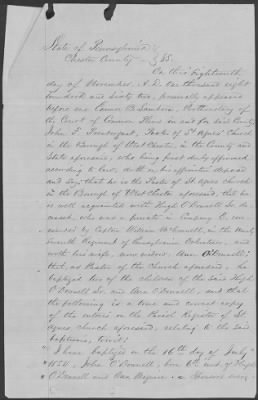 State of Pennsylvania
Chester County } SS.
On this Eighteenth
day of November, A.D. one thousand eight
hundred and sixty two, personally appeared
before me, Prothonotary of
the Court of Common Pleas in and for said County
John F. Pastor of St Agnes' Church
in the Borough of West Chester, in the County and
State aforesaid, who being first duly affirmed,
according to law, doth on his affirmation depose
and say, that he is the Pastor of St Agnes church
in the Borough of West Chester aforesaid, that he
is well acquainted with Hugh O'Donnell Sr. de-
ceased, who was a private in Company com-
manded by Captain William McConnell, in the Ninety
seventh Regiment of Pennsylvania Volunteers, and
with his wife, now widow, Ann O'Donnell;
that, as Pastor of the Church aforesaid, he
baptized two of the children of the said Hugh
O'Donnell Sr. and Ann O'Donnell, and that
the following is a true and correct copy
of the entries on the Parish Register of St
Agnes church aforesaid, relating to the said
baptisms, to wit:
"I have baptized on the 16th day of July
"1854, John O'Donnell, born of Hugh
"O'Donnell and Ann Maguire.